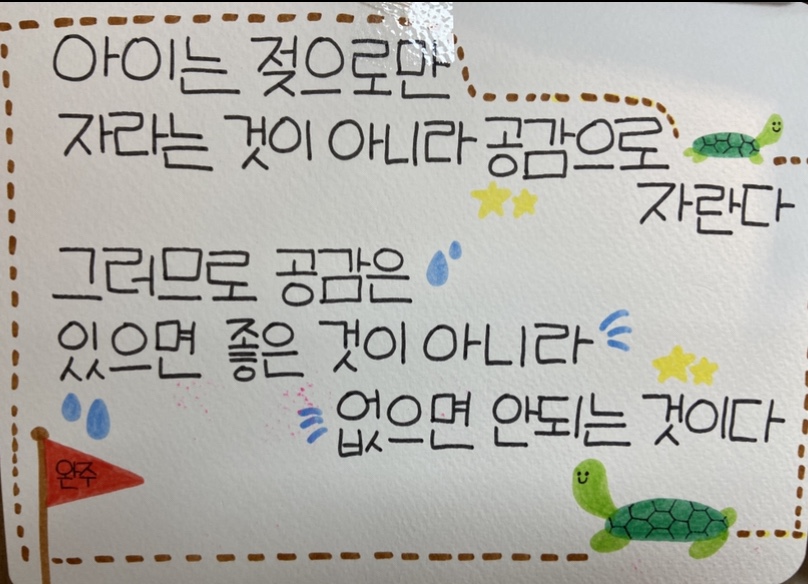 아이는 젖으로만
자라는 것이 아니라 공감으로
자란다
그러므로 공감은
있으면 좋은 것이 아니라
없으면 안되는 것이다
완주